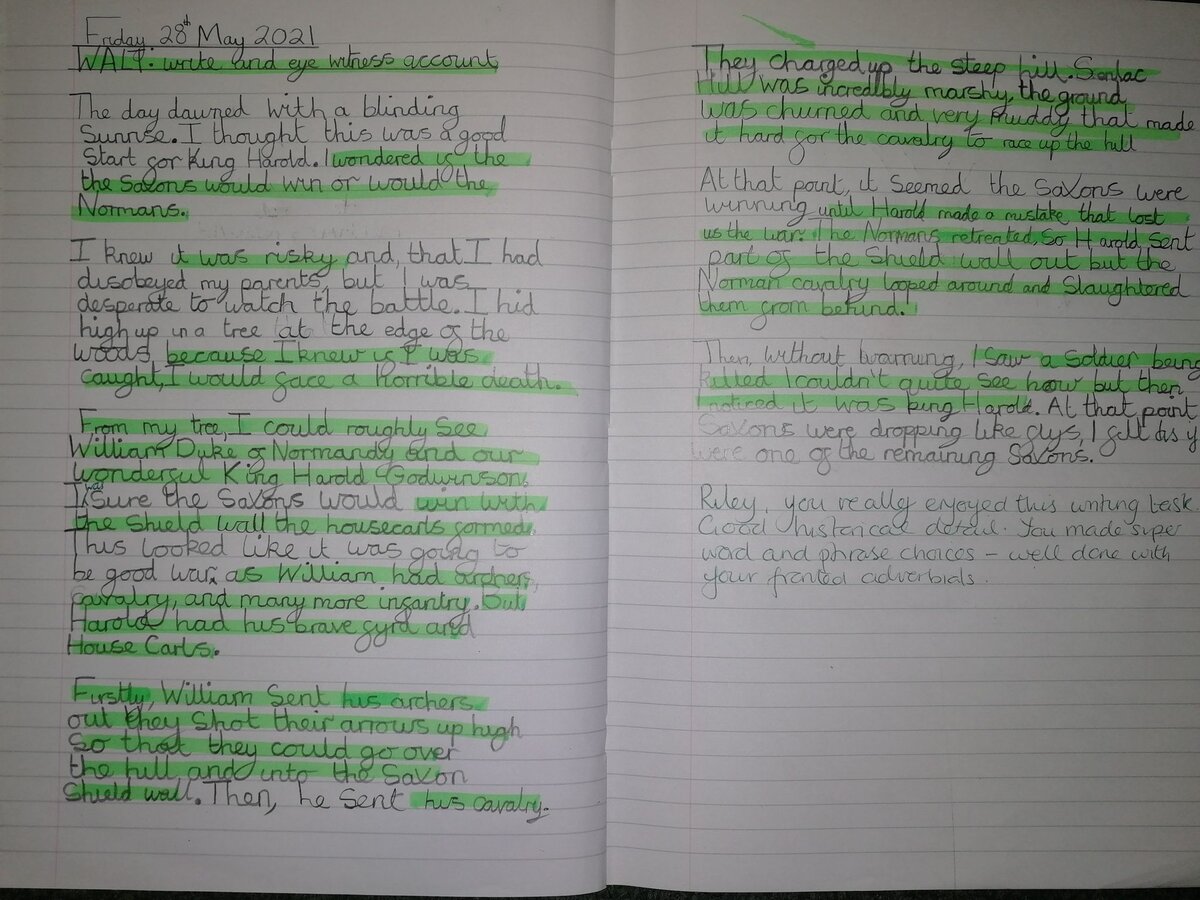 Friday 28th May 2021
WALT: write and eye witness account
The day dawned with a blinding
Sunrise. I thought this was a good
start for King Harold. I wondered if the
the Saxons would win or would the
Normans.
I knew it was risky and, that I had
disobeyed my parents, but I was
desperate to watch the battle. I hid
high up in a tree at the edge of the
woods, because I knew if I was
caught, I would face a horrible death.
From my tree, I could roughly see
William Duke of Normandy and our
wonderful King Harold Godwinson,
I was sure the Saxons would win with
the Shield wall the housecarls formed.
This looked like it was going to
be good war, as William had archers,
cavalry, and many more infantry. But
Harold had his brave fyrd and
House Carls.
Firstly, William Sent his archers
out they shot their arrows up high
So that they could go over
the hill and into the Saxon
Shield wall. Then, he sent his cavalry.
They charged up the steep hill. Senlac
Hill was incredibly marshy, the ground
was churned and very muddy that made
it hard for the cavalry to race up the hill
At that point, it seemed the Saxons were
winning until Harold made a mistake that lost
us the war. The Normans retreated, So Harold sent
part of the Shield wall out but the
Norman cavalry looped around and Slaughtered
them from behind.
Then, without warning, I saw a Soldier being
killed I couldn't quite see how but then
I noticed it was king Harold. At that point
Saxons were dropping like flys, I fell as
were one of the remaining Saxons.
Riley, you really enjoyed this writing task.
Good historical detail. You made super
word and phrase choices - well done with
your fronted adverbials.